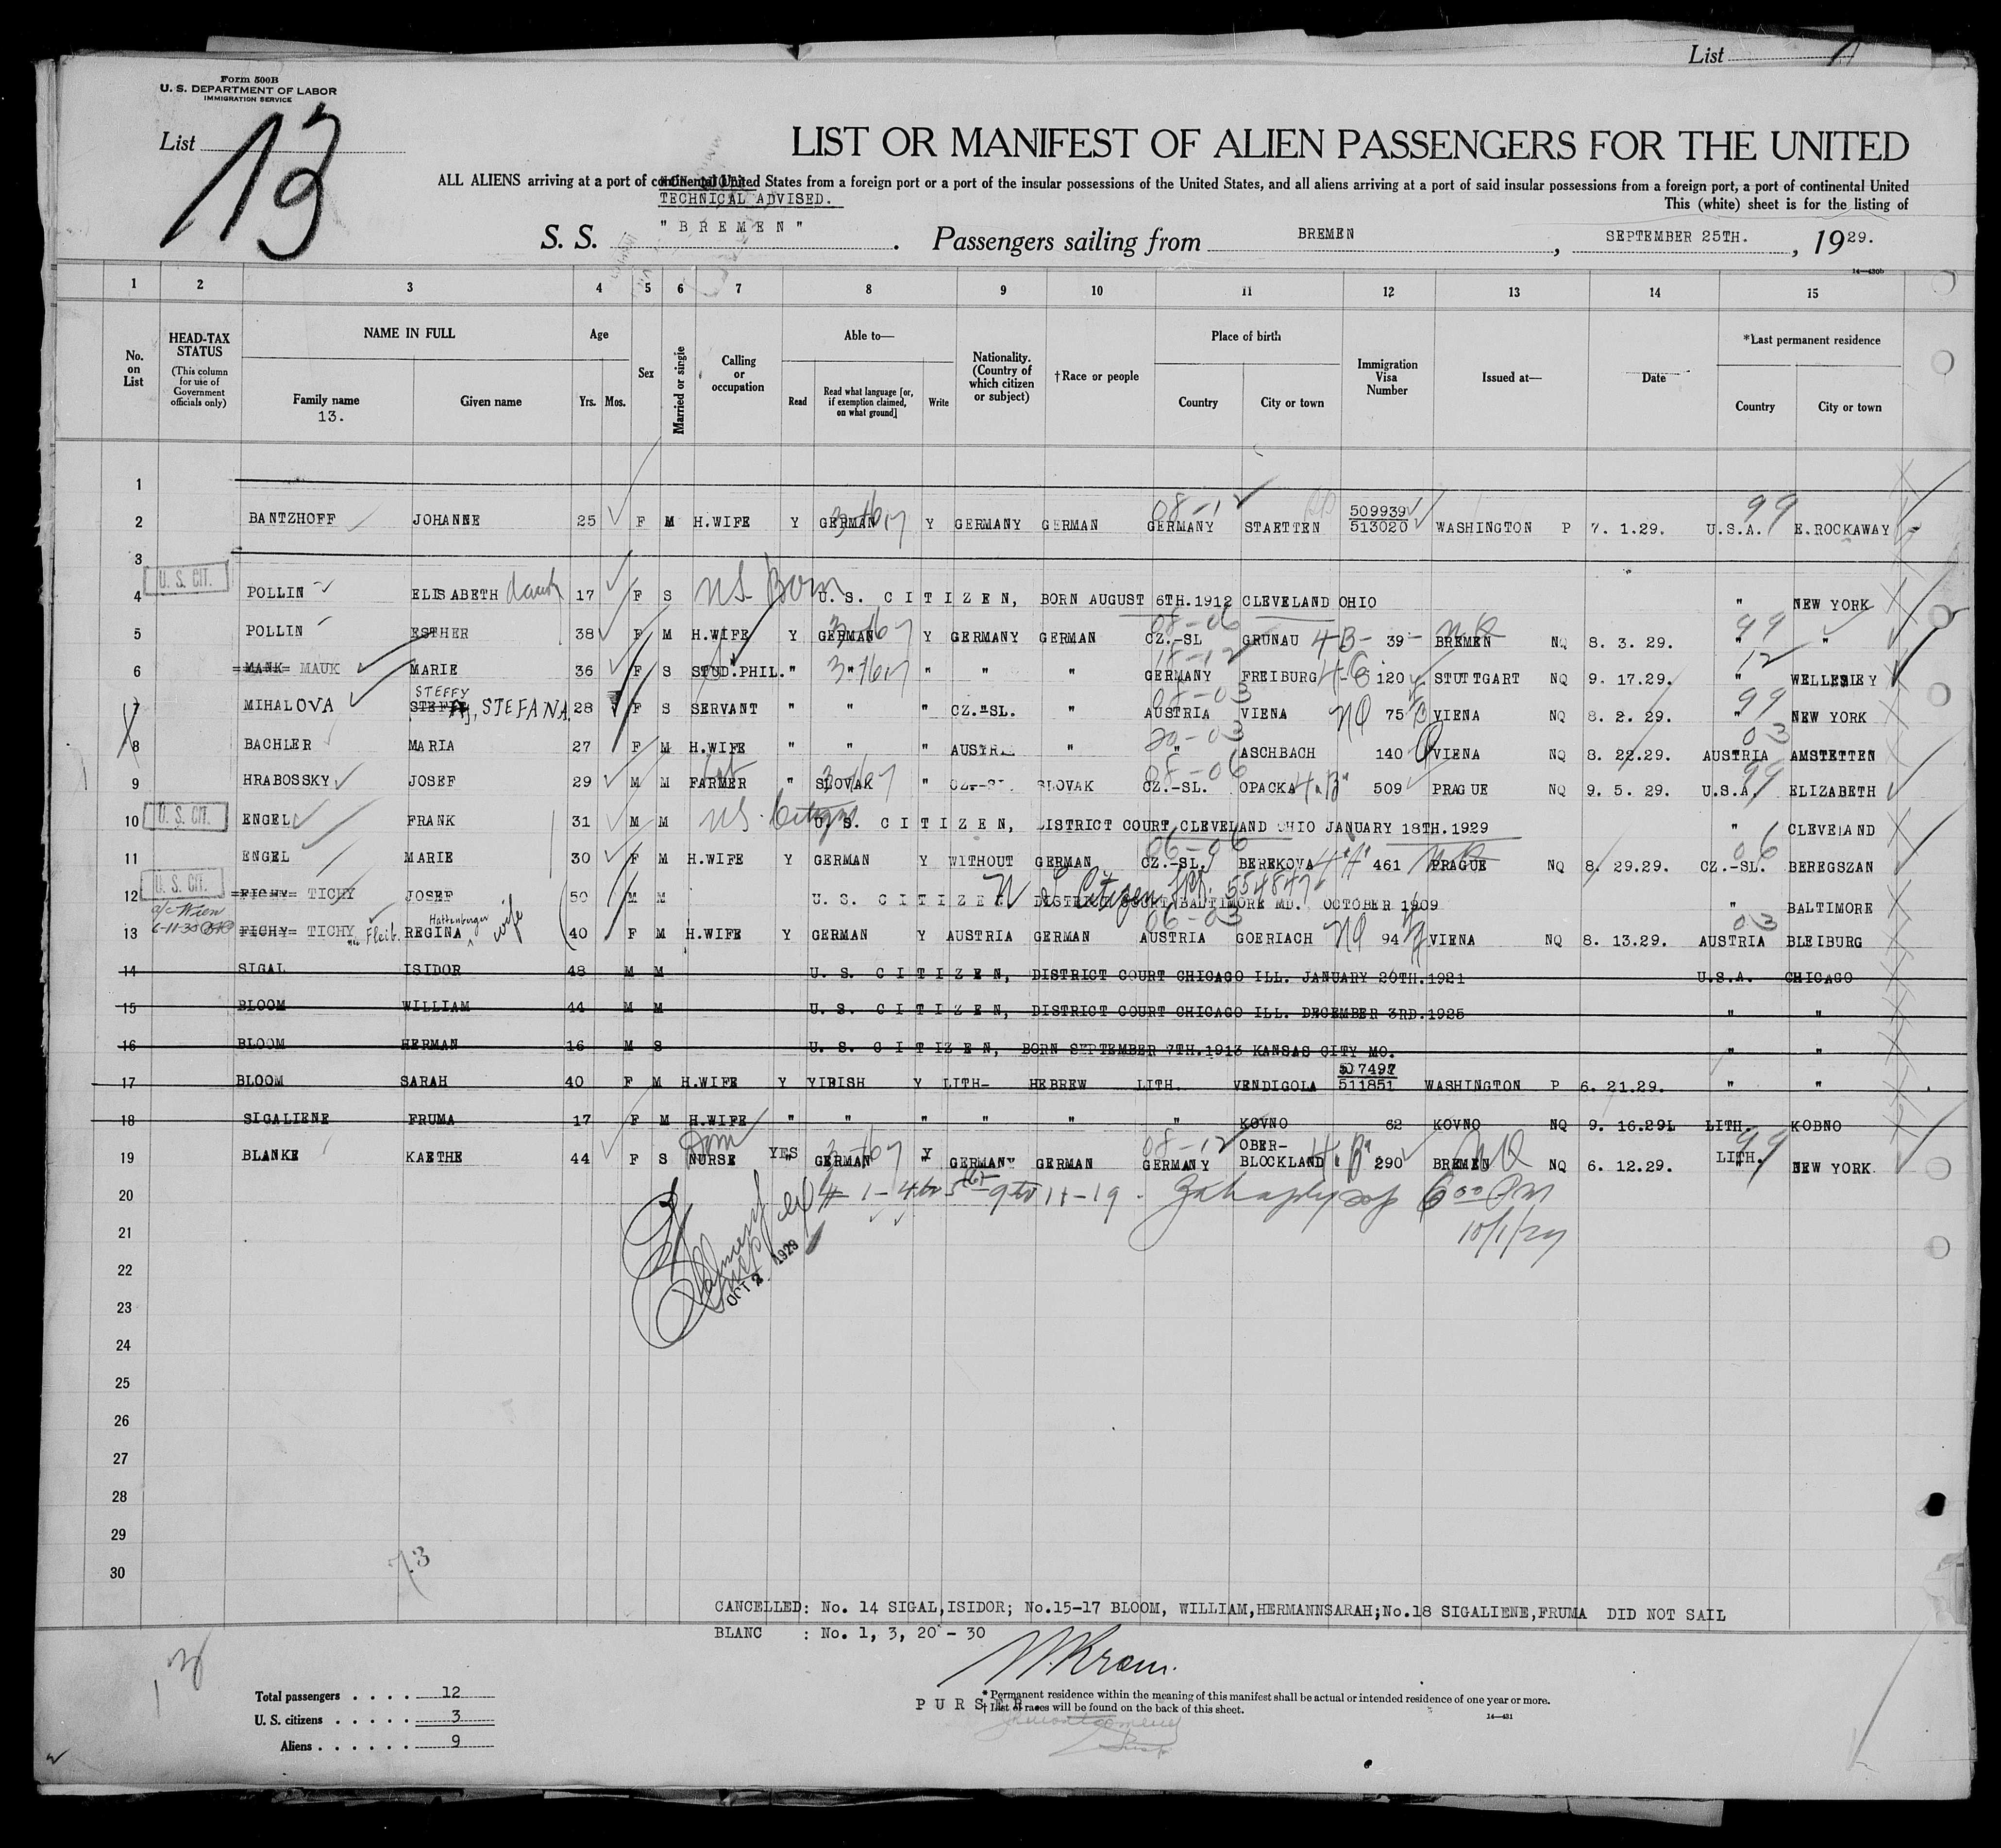 List
Form 500B
U. S. DEPARTMENT OF LABOR
IMMIGRATION SERVICE
List 13
LIST OR MANIFEST OF ALIEN PASSENGERS FOR THE UNITED
ALL ALIENS arriving at a port of continental United States from a foreign port or a port of the insular possessions of the United States, and all aliens arriving at a port of said insular possessions from a foreign port, a port of continental United
TECHNICAL ADVISED.
This (white) sheet is for the listing of
S. S. "BREMEN" . Passengers sailing from BREMEN , SEPTEMBER 25TH. , 1929.
14—430b
1 2 3 4 5 6 7 8 9 10 11 12 13 14 15
No. on List
HEAD-TAX STATUS
(This column for use of Government officials only)
NAME IN FULL
Family name
13.
Given name
Age
Yrs. Mos.
Sex
Married or single
Calling or occupation
Able to—
Read
Read what language [or, if exemption claimed, on what ground]
Write
Nationality. (Country of which citizen or subject)
†Race or people
Place of birth
Country City or town
Immigration Visa Number
Issued at—
Date
*Last permanent residence
Country City or town
1
08-12 99
2 BANTZHOFF JOHANNE 25 F M H.WIFE Y GERMAN Y GERMANY GERMAN GERMANY STAETTEN 509939 513020 WASHINGTON P 7. 1.29. U.S.A. E.ROCKAWAY
3
U. S. CIT.
4 POLLIN ELISABETH 17 F S U.S. Born U. S. CITIZEN, BORN AUGUST 6TH.1912 CLEVELAND OHIO " NEW YORK
08-06 99
5 POLLIN ESTHER 38 F M H.WIFE Y GERMAN Y GERMANY GERMAN CZ.-SL GRUNAU 4-B- 39 BREMEN NQ 8. 3. 29. " "
18-12 12
6 =MANK= MAUK MARIE 36 F S STUD.PHIL. " " " " " GERMANY FREIBURG 120 STUTTGART NQ 9. 17.29. " WELLESLEY
08-03 99
STEFFY
7 MIHALOVA STEFANA 28 F S SERVANT " " " CZ.-SL. " AUSTRIA VIENA NQ 75 VIENA NQ 8. 2. 29. " NEW YORK
20-03 03
8 BACHLER MARIA 27 F M H.WIFE " " " AUSTRIA " " ASCHBACH 140 VIENA NQ 8. 22.29. AUSTRIA AMSTETTEN
08-06 99
9 HRABOSSKY JOSEF 29 M M FARMER " SLOVAK " CZ.-SL. SLOVAK CZ.-SL. OPACKA 509 PRAGUE NQ 9. 5. 29. U.S.A. ELIZABETH
U. S. CIT.
10 ENGEL FRANK 31 M M U.S. Citizen U. S. CITIZEN, DISTRICT COURT CLEVELAND OHIO JANUARY 18TH.1929 " CLEVELAND
06-06 06
11 ENGEL MARIE 30 F M H.WIFE Y GERMAN Y WITHOUT GERMAN CZ.-SL. BEREKOVA 461 PRAGUE NQ 8. 29.29. CZ.-SL. BEREGSZAN
U. S. CIT.
12 =FICHY= TICHY JOSEF 50 M M U. S. CITIZEN Citizen 554847 DISTRICT COURT BALTIMORE MD. OCTOBER 1909 " BALTIMORE
06-03 03
13 FICHY= TICHY REGINA Hattenberger wife 40 F M H.WIFE Y GERMAN Y AUSTRIA GERMAN AUSTRIA GOERIACH NQ 94 VIENA NQ 8. 13.29. AUSTRIA BLEIBURG
14 SIGAL ISIDOR 48 M M U. S. CITIZEN, DISTRICT COURT CHICAGO ILL. JANUARY 20TH.1921 U.S.A. CHICAGO
15 BLOOM WILLIAM 44 M M U. S. CITIZEN, DISTRICT COURT CHICAGO ILL. DECEMBER 3RD.1925 " "
16 BLOOM HERMAN 16 M S U. S. CITIZEN, BORN SEPTEMBER 7TH.1913 KANSAS CITY MO. " "
17 BLOOM SARAH 40 F M H.WIFE Y YIDISH Y LITH- HEBREW LITH. VENDIGOLA 511851 WASHINGTON P 6. 21.29. " "
18 SIGALIENE FRUMA 17 F M H.WIFE " " " " " " KOVNO 62 KOVNO NQ 9. 16.29. LITH. KOBNO
08-12 99
19 BLANKE KAETHE 44 F S NURSE YES GERMAN Y GERMANY GERMAN GERMANY OBER-BLOCKLAND 290 BREMEN NQ 6. 12.29. LITH. NEW YORK
20 6 00 PM
21 10/1/29
OCT 2 1929
22
23
24
25
26
27
28
29
30
CANCELLED: No. 14 SIGAL,ISIDOR; No.15-17 BLOOM, WILLIAM,HERMANNSARAH;No.18 SIGALIENE,FRUMA DID NOT SAIL
BLANC : No. 1, 3, 20 - 30
Total passengers . . . . 12
U. S. citizens . . . . . 3
Aliens . . . . . . 9
PURSER.
* Permanent residence within the meaning of this manifest shall be actual or intended residence of one year or more.
† List of races will be found on the back of this sheet.
14—431